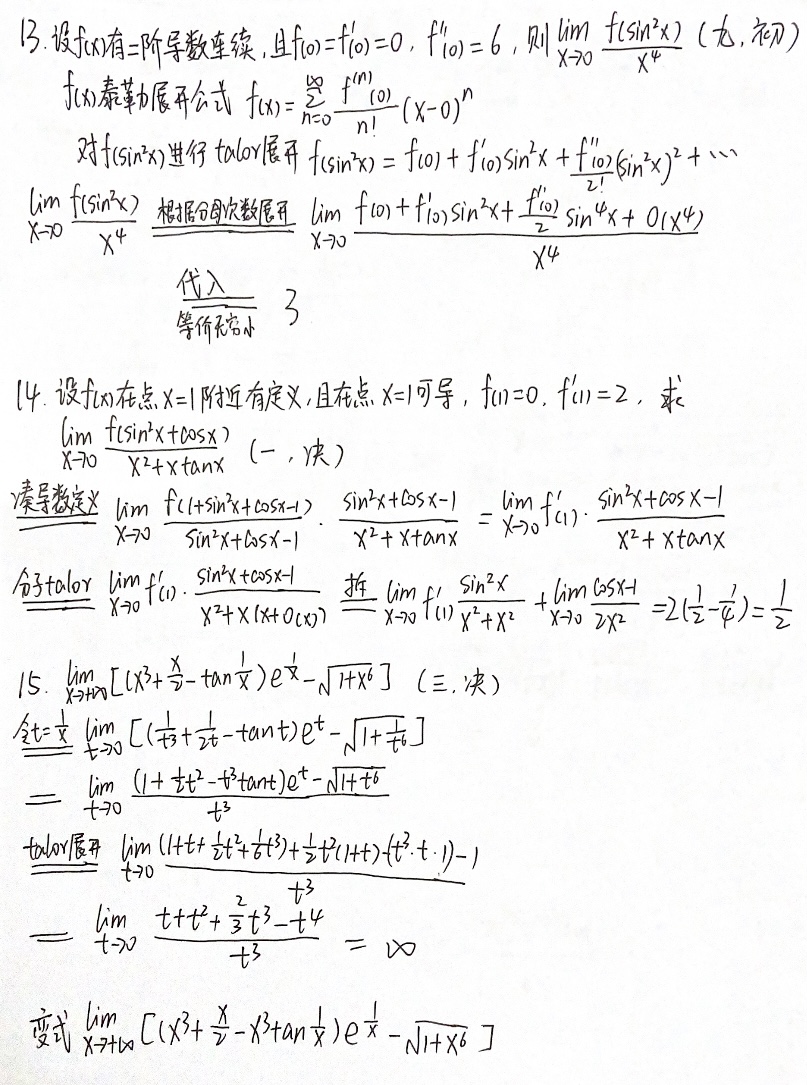 13. 设f(x)有二阶导数连续, 且f(0)=f'(0)=0, f''(0)=6, 则 lim_{x→0} f(sin²x)/x⁴ (九, 初)
f(x)泰勒展开公式 f(x)=∑_{n=0}^{∞} f^{(n)}(0)/n! (x-0)^n
对f(sin²x)进行talor展开 f(sin²x) = f(0) + f'(0)sin²x + f''(0)/2! (sin²x)² + ⋯
lim_{x→0} f(sin²x)/x⁴ 根据分母次数展开 lim_{x→0} [f(0) + f'(0)sin²x + f''(0)/2 sin⁴x + o(x⁴)]/x⁴
代入
等价无穷小 3
14. 设f(x)在点x=1附近有定义, 且在点x=1可导, f(1)=0, f'(1)=2, 求
lim_{x→0} f(sin²x+cosx)/(x²+xtanx) (一, 决)
凑导数定义 lim_{x→0} f(1+sin²x+cosx-1)/(sin²x+cosx-1) · (sin²x+cosx-1)/(x²+xtanx) = lim_{x→0} f'(1) · (sin²x+cosx-1)/(x²+xtanx)
分子talor lim_{x→0} f'(1) · (sin²x+cosx-1)/(x²+x(x+o(x))) 拆 lim_{x→0} f'(1) sin²x/(x²+x²) + lim_{x→0} (cosx-1)/2x² = 2(1/2-1/4) = 1/2
15. lim_{x→+∞} [(x³+x/2-tan1/x)e^{1/x}-√(1+x⁶)] (三, 决)
令t=1/x lim_{t→0} [(1/t³+1/2t-tant)e^t-√(1+1/t⁶)]
= lim_{t→0} [(1+1/2t²-t³tant)e^t-√(1+t⁶)]/t³
talor展开 lim_{t→0} [(1+t+1/2t²+1/6t³)+1/2t²(1+t)-(t³·t·1)-1]/t³
= lim_{t→0} (t+t²+2/3t³-t⁴)/t³ = ∞
变式 lim_{x→+∞} [(x³+x/2-x³tan1/x)e^{1/x}-√(1+x⁶)]